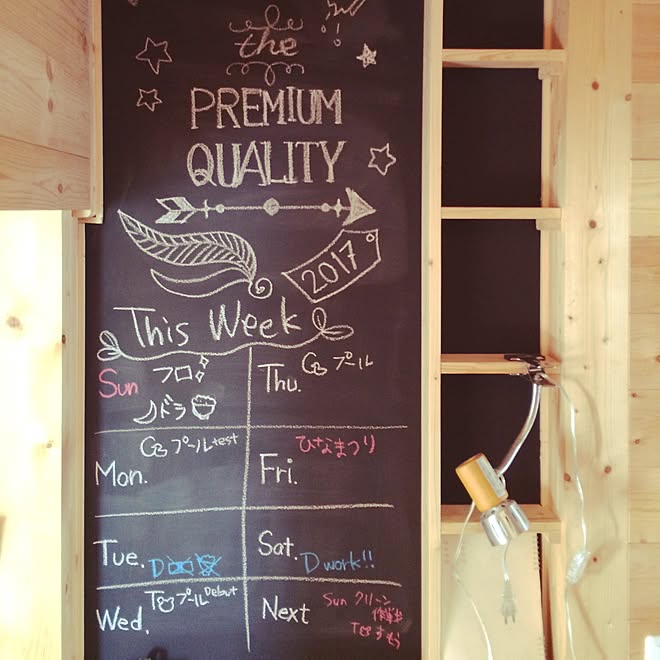 the
PREMIUM
QUALITY
2017
This Week
Sun フロ
ドラ
Mon. プールtest
Tue. D
Wed. プールDebut
Thu. プール
Fri. ひなまつり
Sat. D work!!
Next Sun クリーン